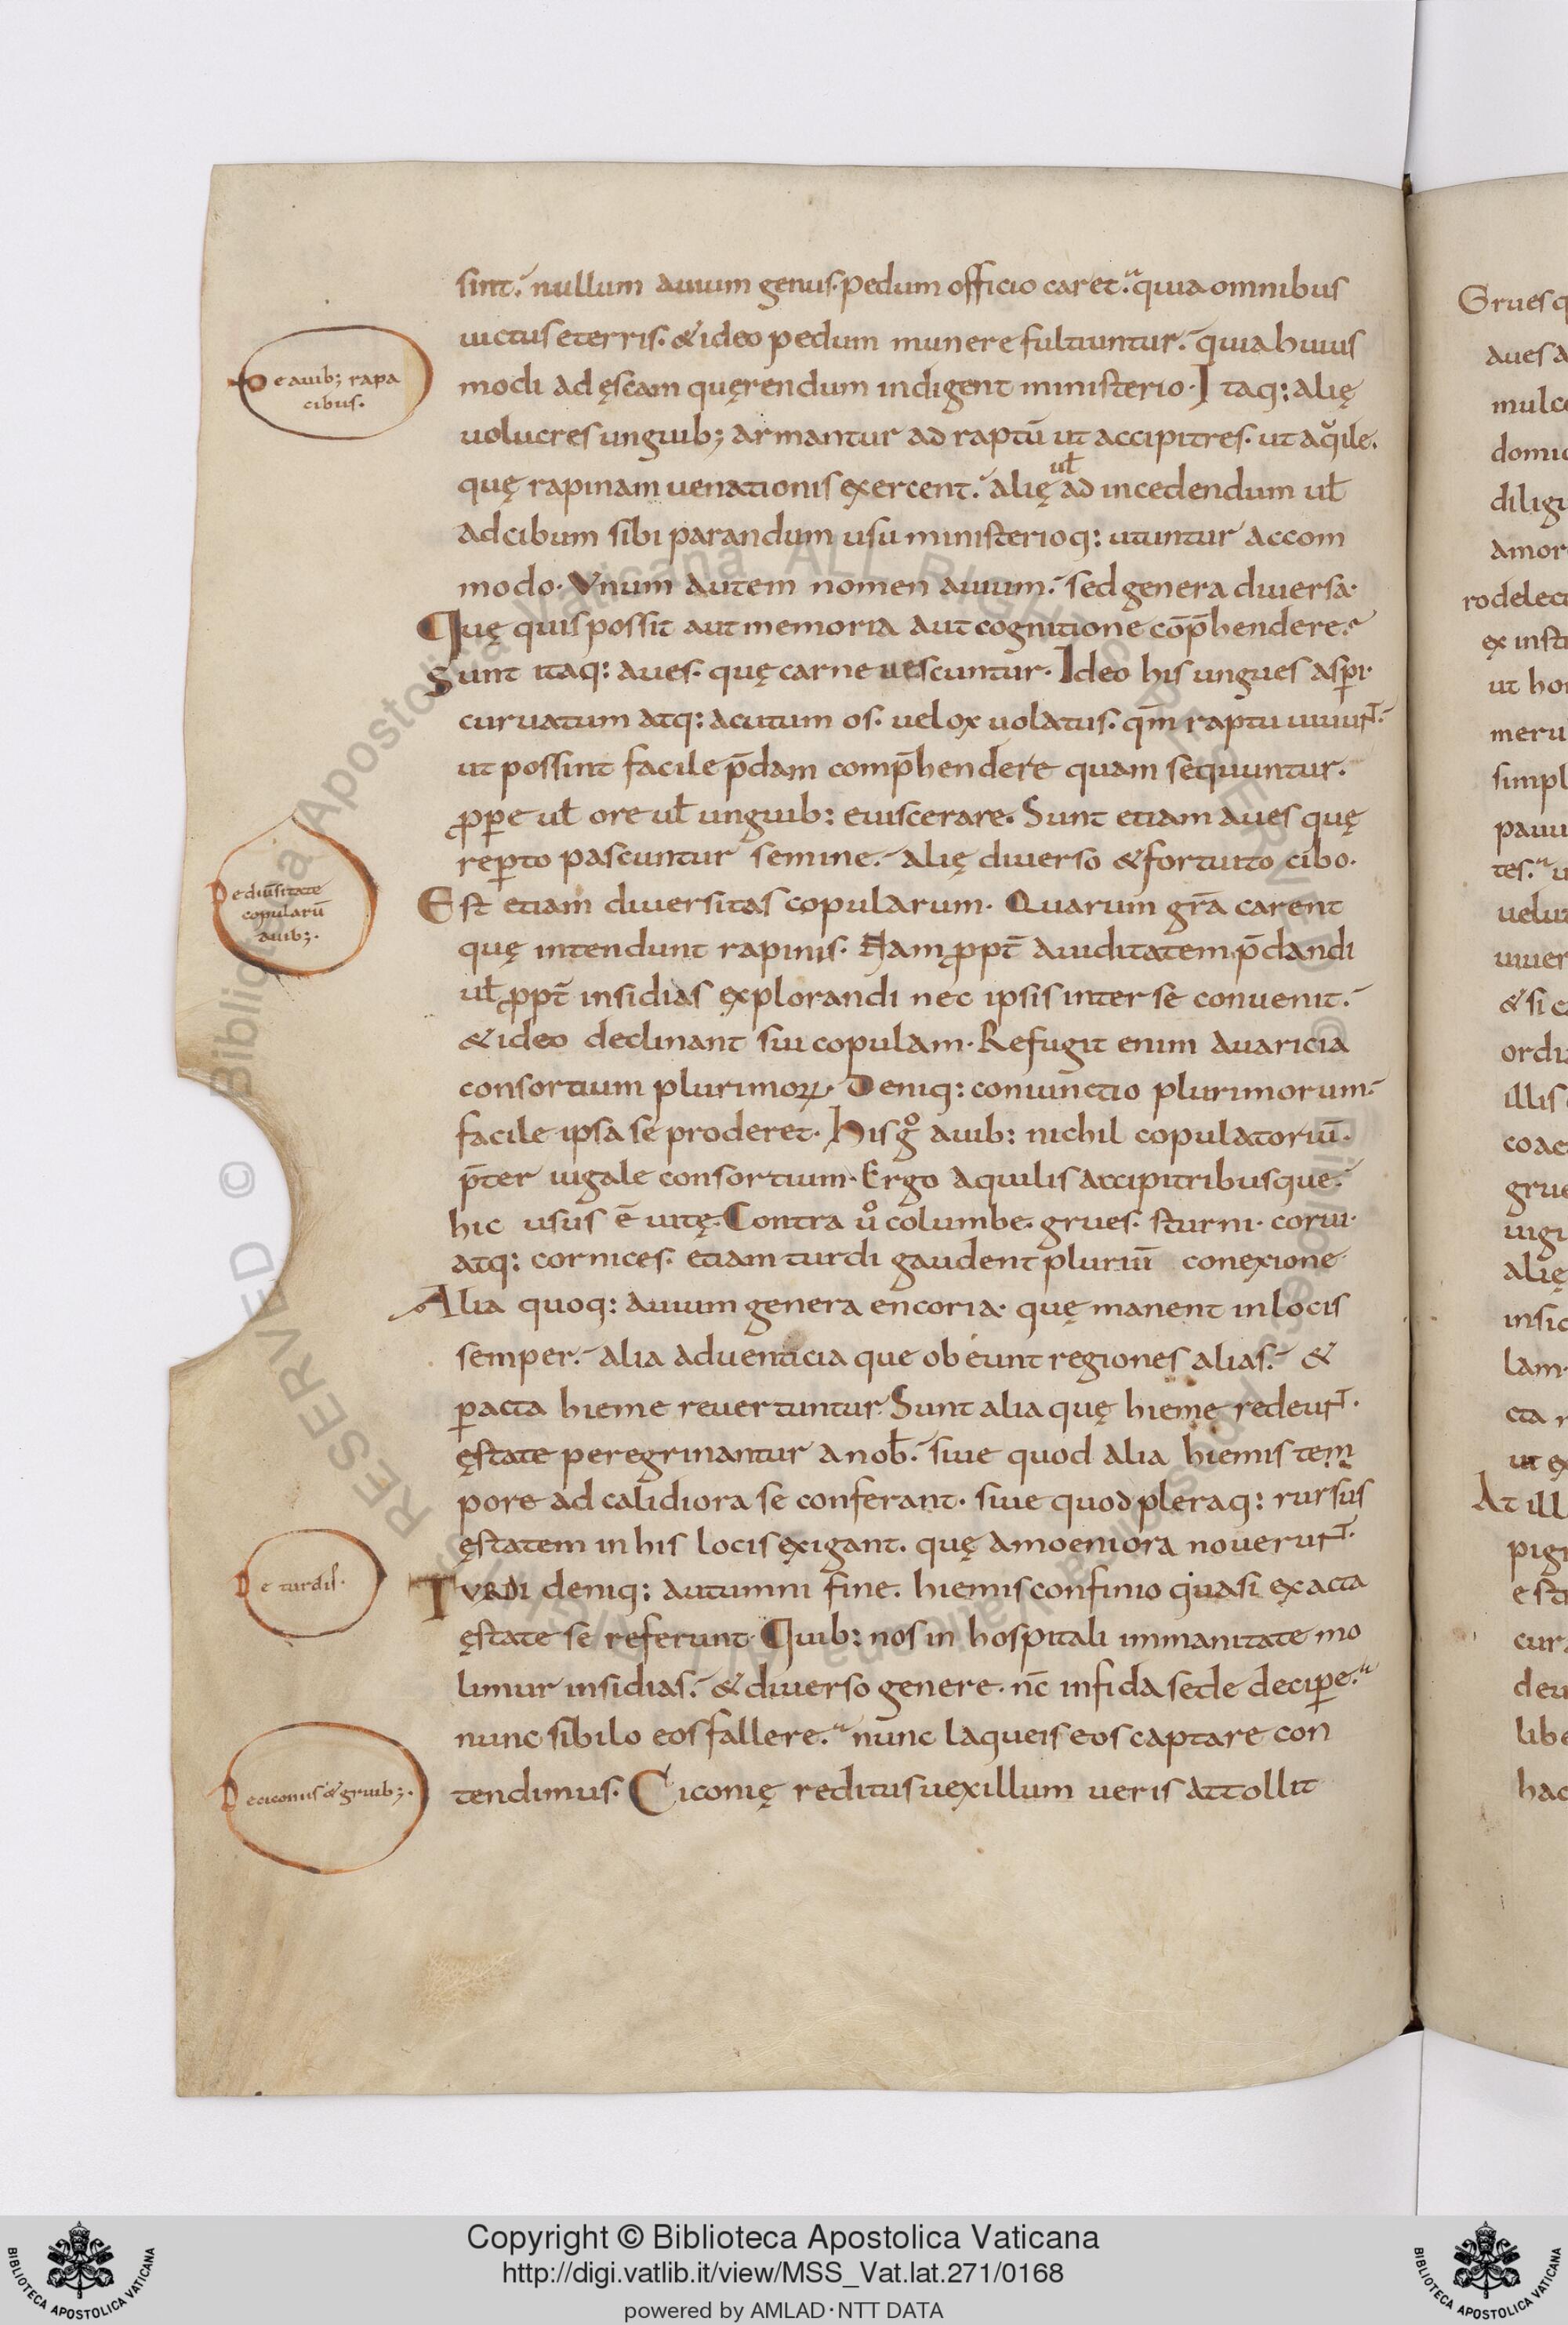 sint. nullum auium genus. pedum officio caret. quia omnibus
uictus e terris. & ideo pedum munere fultiuntur. quia huius
De auib; rapa
cibus.
modi ad ęscam quęrendum indigent ministerio. Itaq: alię
uolucres unguib; armantur ad raptū ut accipitres. ut aq̆ile.
quę rapinam uenationis exercent. alię uƚ ad incedendum uƚ
ad cibum sibi parandum usu ministerioq: utuntur accom
modo. Vnum autem nomen auium. sed genera diuersa.
Quę quis possit aut memoria aut cognitione cōp̄hendere.
Sunt itaq: aues. quę carne uescuntur. Ideo his ungues asꝑi.
curuatum atq: acutum os. uelox uolatus. qm̄ raptu uiuunt.
ut possint facile p̄dam comp̄hendere quam sequuntur.
ꝓꝑe uƚ ore uƚ unguib: euiscerare. Sunt etiam aues quę
reꝑto pascuntur semine. alię diuerso & fortuito cibo.
De diūsitate
copularū
auib;.
Est etiam diuersitas copularum. Quarum gr̄a carent
quę intendunt rapinis. Nam ꝓpt̄ auiditatem p̄dandi
uƚ ꝓpt̄ insidias explorandi nec ipsis inter se conuenit.
& ideo declinant sui copulam. Refugit enim auaricia
consortium plurimoꝝ. Deniq: coniunctio plurimorum.
facile ipsa se proderet. His gͦ auib: nichil copulatoriū.
p̄ter iugale consortium. Ergo aquilis accipitribusque.
hic usus ē uitę. Contra uͦ columbe. grues. sturni. corui.
atq: cornices. etiam turdi gaudent pluriū conexione
Alia quoq: auium genera encoria. quę manent in locis
semper. alia aduenticia que obeunt regiones alias. &
ꝑacta hieme reuertuntur. Sunt alia quę hieme redeunt.
ęstate peregrinantur a nob̄. siue quod alia hiemis tem
pore ad calidiora se conferant. siue quod pleraq: rursus
ęstatem in his locis exigant. quę amoeniora nouerunt.
De turdis.
TVRDI deniq: autumni fine. hiemis confinio quasi exacta
ęstate se referunt. Quib: nos in hospitali immanitate mo
limur insidias. & diuerso genere. nc̄ infida sede deciꝑe.
nunc sibilo eos fallere. nunc laqueis eos captare con
De ciconiis & gruib;.
tendimus. Ciconię reditus uexillum ueris attollit
Copyright © Biblioteca Apostolica Vaticana
http://digi.vatlib.it/view/MSS_Vat.lat.271/0168
powered by AMLAD·NTT DATA
BIBLIOTECA APOSTOLICA VATICANA
BIBLIOTECA APOSTOLICA VATICANA